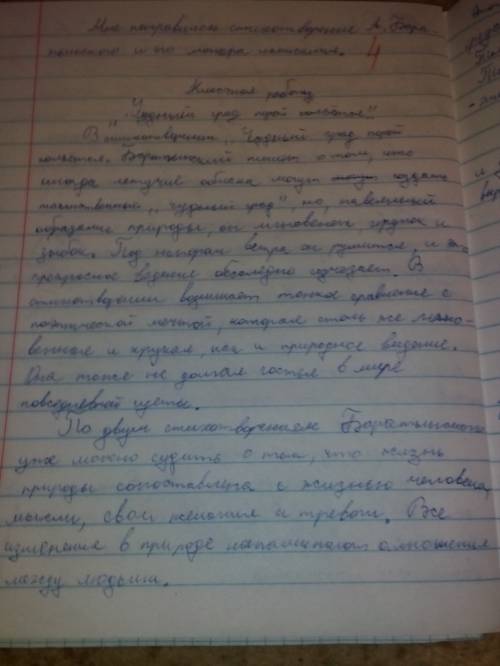 Мне понравилось стихотворение А. Бара-
тынского и его манера написания. 4
Классная работа
„Чудный град порой сольётся"
В стихотворении „Чудный град порой
сольётся" Баратынский пишет о том, что
иногда летучие облака могут создать
таинственный „чудный град", но, навеянный
образами природы, он мгновенен, хрупок и
зыбок. Под напором ветра он рушится, и это
прекрасное видение бесследно исчезает. В
стихотворении возникает тонкое сравнение с
поэтической мечтой, которая столь же мгно-
венная и хрупкая, как и природное видение.
Она тоже не долгая гостья в мире
повседневной суеты.
По двум стихотворениям Баратынского
уже можно судить о том, что жизнь
природы сопоставима с жизнью человека,
мысли, свои желания и тревоги. Все
измерения в природе напоминают отношения
между людьми.